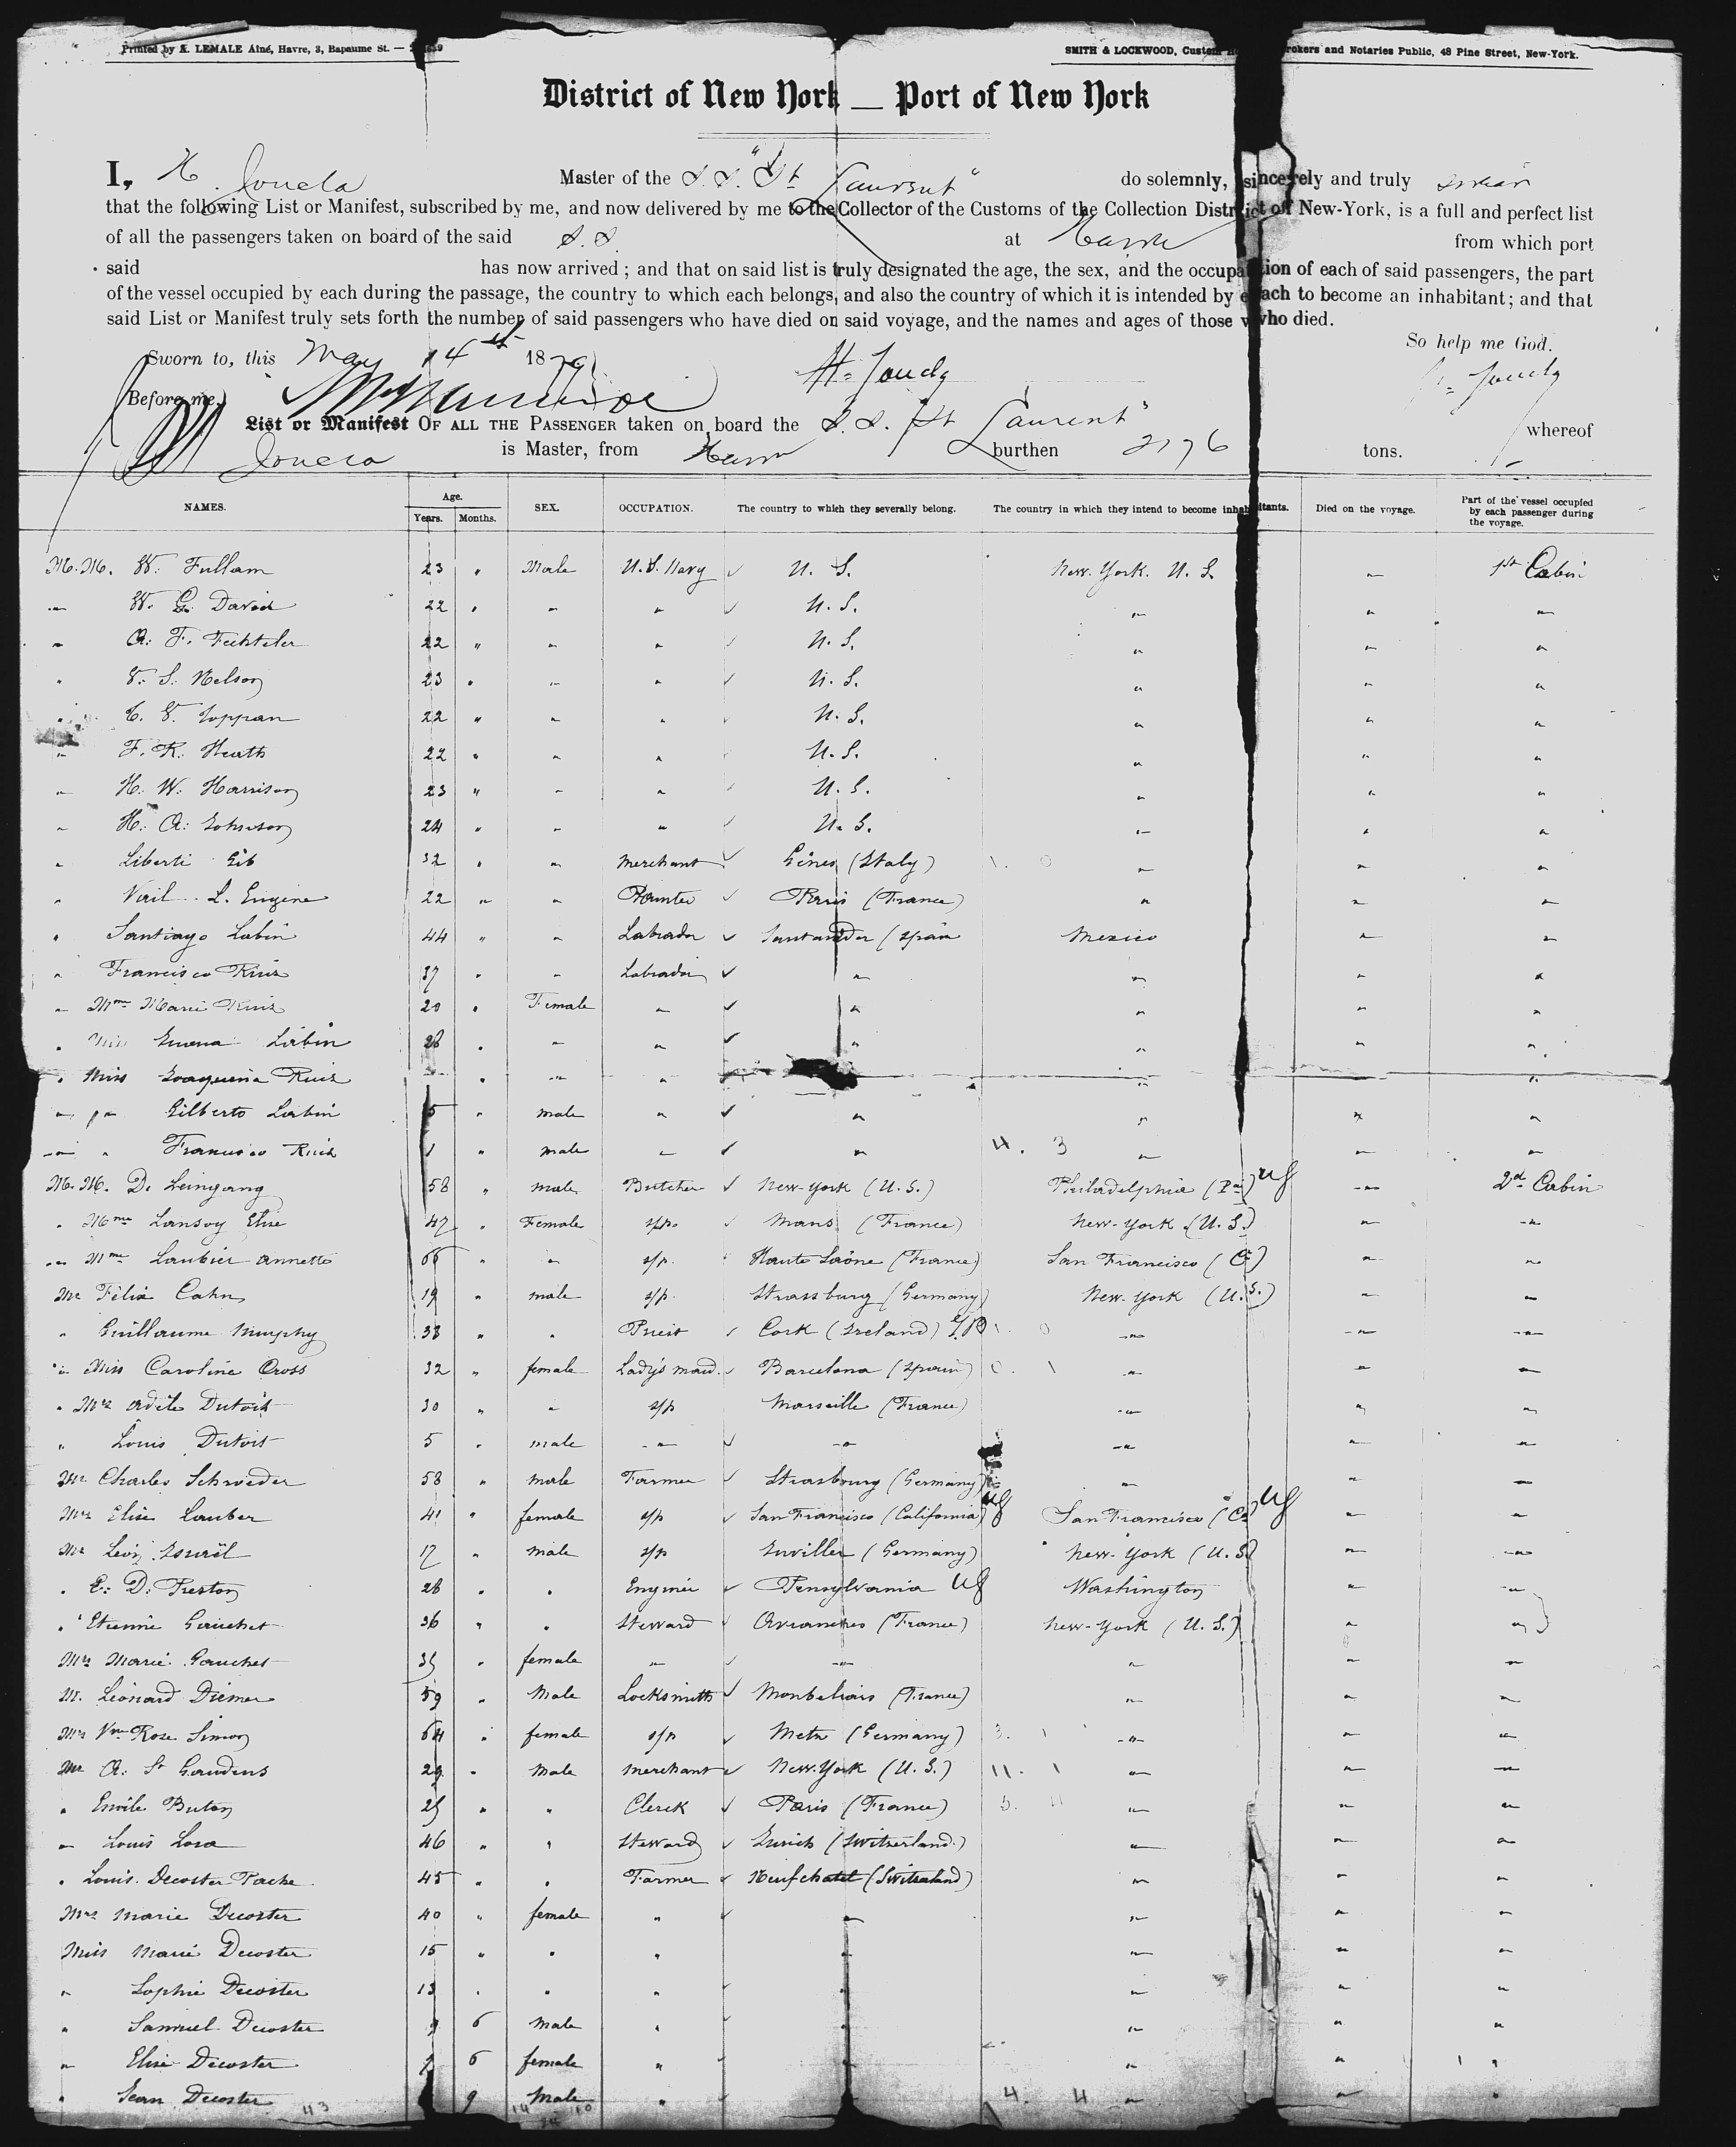 Printed by A. LEMALE Aîné, Havre, 3, Bapaume St. —
SMITH & LOCKWOOD, Custom Brokers and Notaries Public, 48 Pine Street, New-York.
District of New York — Port of New York
I, H. Joucla Master of the S.S. "St Laurent" do solemnly, sincerely and truly swear
that the following List or Manifest, subscribed by me, and now delivered by me to the Collector of the Customs of the Collection District of New-York, is a full and perfect list
of all the passengers taken on board of the said S.S. at Havre from which port
said has now arrived ; and that on said list is truly designated the age, the sex, and the occupation of each of said passengers, the part
of the vessel occupied by each during the passage, the country to which each belongs, and also the country of which it is intended by each to become an inhabitant; and that
said List or Manifest truly sets forth the number of said passengers who have died on said voyage, and the names and ages of those who died.
So help me God.
Sworn to, this May 14th 1879
Before me,
List or Manifest OF ALL THE PASSENGER taken on board the S.S. "St Laurent" whereof
Joucla is Master, from Havre burthen tons.
NAMES. Age. Years. Months. SEX. OCCUPATION. The country to which they severally belong. The country in which they intend to become inhabitants. Died on the voyage. Part of the vessel occupied by each passenger during the voyage.
M.M. W. Fullam 23 " Male U.S. Navy U. S. New. York. U. S. " 1st Cabin
" W. G. David 22 " " " U. S. " " "
" A. F. Fechteler 22 " " " U. S. " " "
" V. S. Nelson 23 " " " U. S. " " "
" C. V. Toppan 22 " " " U. S. " " "
" F. R. Heath 22 " " " U. S. " " "
" H. W. Harrison 23 " " " U. S. " " "
" H. A. Johnson 24 " " " U. S. " " "
" Liberti Gib 32 " " Merchant Gênes (Italy) " " "
" Vail L. Eugène 22 " " Painter Paris (France) " " "
" Santiago Labin 44 " " Labrador Santander (Spain Mexico " "
" Francisco Ruiz 37 " " Labrador " " " "
" Mme Marie Ruiz 20 " Female " " " " "
" Miss Labin 28 " " " " " " "
" Miss Joaquina Ruiz " " " " "
" " Gilberto Labin 5 " male " " " " "
" " Francisco Ruiz 1 " male " " " " "
M.M. D. Leingang 58 " male Butcher New-York (U.S.) Philadelphia (Pa) " 2d Cabin
" Mme Lansoy Elise 47 " Female s/p. Mans (France) New-York (U.S.) " "
" Mme Laubier Annette 66 " " s/p. Haute Saône (France) San Francisco (Ca) " "
Mr Félix Cahn 19 " male s/p. Strassburg (Germany) New-York (U.S.) " "
" Guillaume Murphy 38 " " Priest Cork (Ireland) " " "
" Miss Caroline Cross 32 " female Lady's maid. Barcelona (Spain) " " "
" Mrs Adèle Dutoit 30 " " s/p Marseille (France) " " "
" Louis Dutoit 5 " male " " " " "
Mr Charles Schroeder 58 " Male Farmer Strasbourg (Germany) " " "
Mrs Elise Lauber 41 " female s/p San Francisco (California) San Francisco (Ca) " "
Mr Levy Israël 17 " male s/p (Germany) New-York (U.S.) " "
" E. D. Preston 28 " " Enginer Pensylvania Washington " "
" Etienne Gauchet 36 " " Steward Avranches (France) New-York (U.S.) " "
Mrs Marie Gauchet 35 " female " " " " "
M. Léonard Diemer 59 " Male Locksmith Monbeliars (France) " " "
Mrs Vve Rose Simon 64 " female s/p Metz (Germany) " " "
Mr A. St Gaudens 29 " Male Merchant New-York (U.S.) " " "
" Emile Buton 25 " " Clerck Paris (France) " " "
" Louis Losa 46 " " Steward Zurich (Switzerland.) " " "
" Louis Decoster Pache 45 " " Farmer Neufchatel (Switzeland) " " "
Mrs Marie Decoster 40 " female " " " " "
Miss Marie Decoster 15 " " " " " " "
" Sophie Decoster 13 " " " " " " "
" Samuel Decoster 9 6 Male " " " " "
" Elise Decoster 6 female " " " " "
" Jean Decoster 9 Male " " " " "